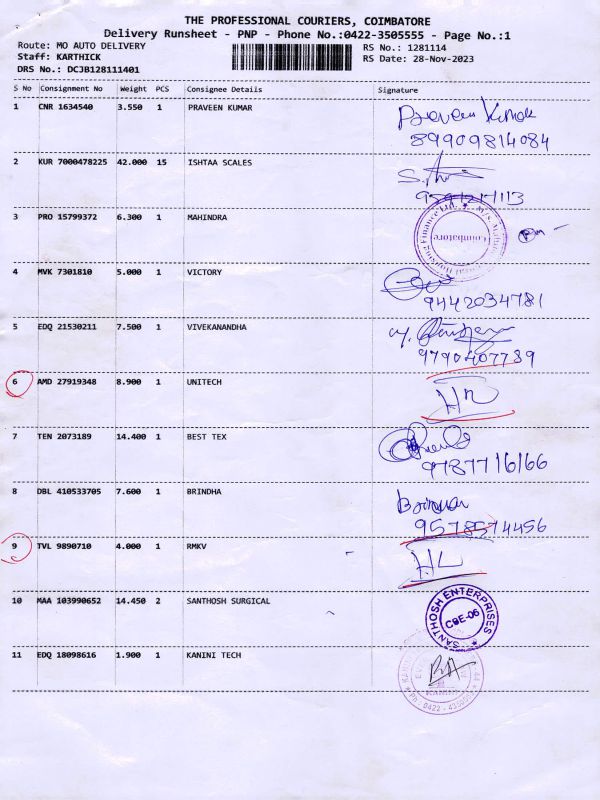 THE PROFESSIONAL COURIERS, COIMBATORE
Delivery Runsheet - PNP - Phone No.:0422-3505555 - Page No.:1
Route: MO AUTO DELIVERY
RS No.: 1281114
Staff: KARTHICK
RS Date: 28-Nov-2023
DRS No.: DCJB128111401
S No Consignment No Weight PCS Consignee Details Signature
1 CNR 1634540 3.550 1 PRAVEEN KUMAR Praveen Kumar
89909814084
2 KUR 7000478225 42.000 15 ISHTAA SCALES
3 PRO 15799372 6.300 1 MAHINDRA
Finance Ltd.
Coimbatore
4 MVK 7301810 5.000 1 VICTORY
9442034781
5 EDQ 21530211 7.500 1 VIVEKANANDHA
9790407789
6 AMD 27919348 8.900 1 UNITECH
7 TEN 2073189 14.400 1 BEST TEX
9787716166
8 DBL 410533705 7.600 1 BRINDHA
9578574456
9 TVL 9890710 4.000 1 RMKV
10 MAA 103990652 14.450 2 SANTHOSH SURGICAL
SANTHOSH ENTERPRISES
CBE-06
11 EDQ 18098616 1.900 1 KANINI TECH